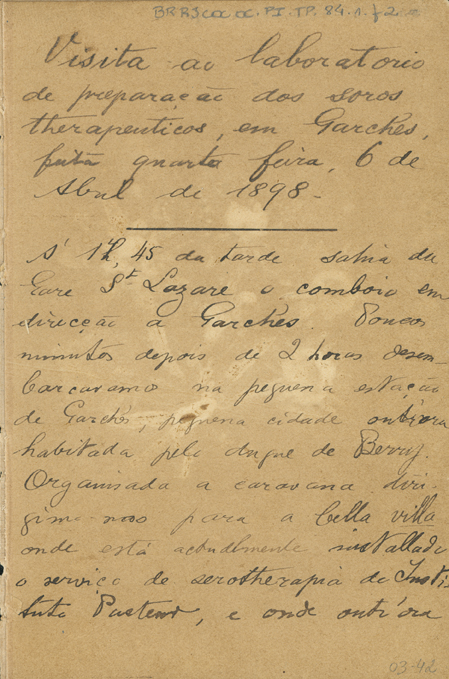 BR RJ COC OC. PI. TP. 84. v. 1 f 2
Visita ao laboratorio
de preparação dos soros
therapeuticos, em Garches,
feita quarta feira, 6 de
Abril de 1898.
A's 1h,45 da tarde sahia da
Gare St Lazare o comboio em
direcção a Garches. Poucos
minutos depois de 2 horas desem-
barcavamos na pequena estação
de Garches, pequena cidade outr'ora
habitada pelo duque de Berry.
Organisada a caravana diri-
gimo nos para a bella villa
onde está actualmente installado
o serviço de serotherapia do Insti
tuto Pasteur, e onde outr'ora
03-42